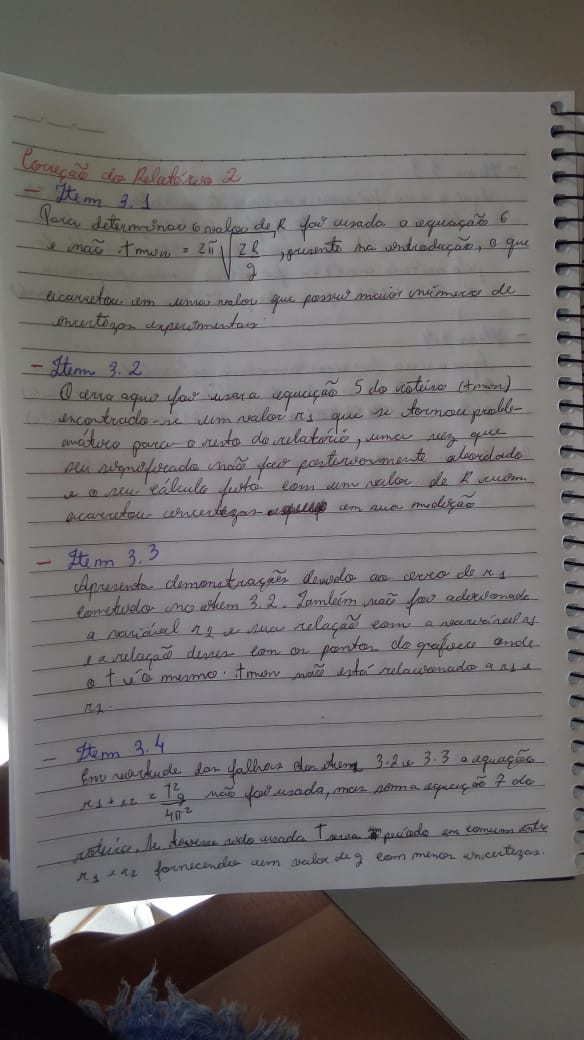 Correção do Relatório 2
- Item 3.1
Para determinar o valor de R foi usada a equação 6
e não tmin = 2π √(2R/g), presente na introdução, o que
acarretou em uma valor que possui maior número de
incertezas experimentais.
- Item 3.2
O erro aqui foi usar a equação 5 do roteiro (tmin)
encontrado-se um valor r1 que se tornou proble-
mático para o resto do relatório, uma vez que
seu significado não foi posteriormente abordado
e o seu cálculo feito com um valor de R ruim
acarretou incertezas em sua medição
- Item 3.3
Apresenta demonstrações devido ao erro de r1
cometido no item 3.2. Também não foi adicionado
a variável r2 e sua relação com a variável r1
e a relação desses com os pontos do gráfico onde
o t é o mesmo. tmin não está relacionado a r1 e
r2.
- Item 3.4
Em virtude das falhas dos item 3.2 e 3.3 a equação
r1 + r2 = T²g/4π² não foi usada, mas sim a equação 7 do
roteiro. Se tivesse sido usada T seria período em comum entre
r1 e r2 fornecendo um valor de g com menos incertezas.